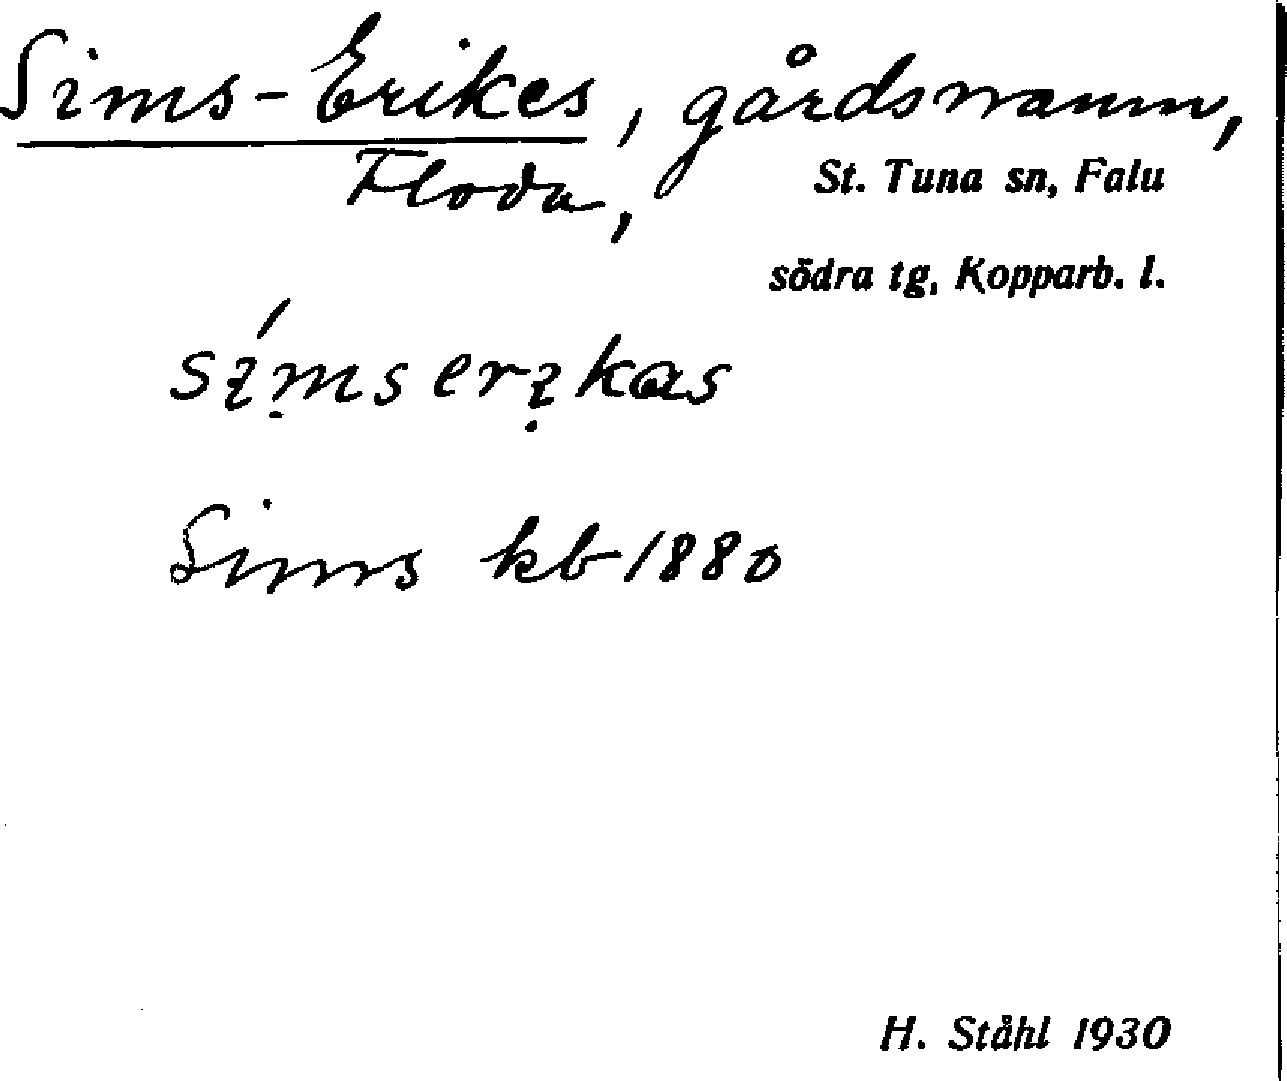 Sims-Erikes, gårdsnamn,
Floda, St. Tuna sn, Falu
södra tg, Kopparb. l.
símṣerịkas
Sims kb 1880
H. Ståhl 1930